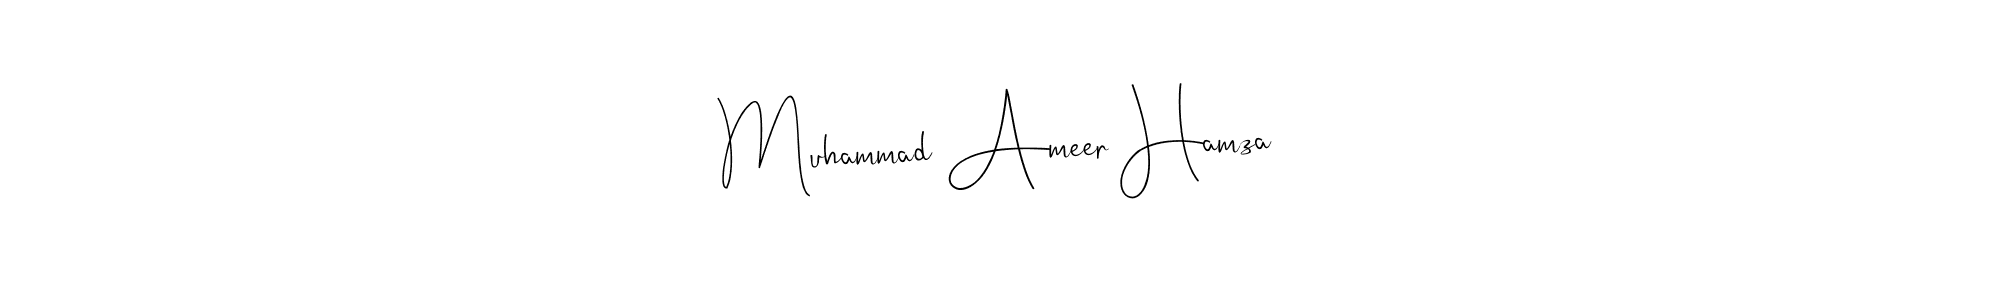 Muhammad Ameer Hamza